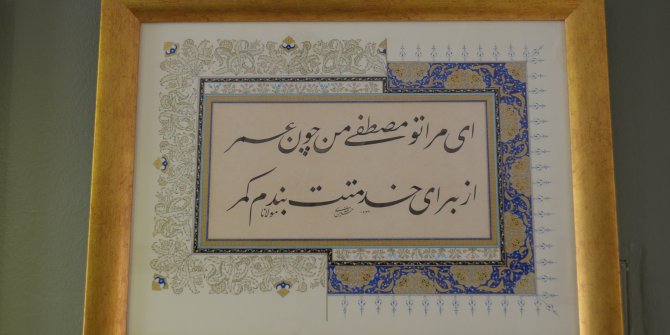 ای مرا تو مصطفی من چون عمر
از برای خدمتت بندم کمر
مولانا